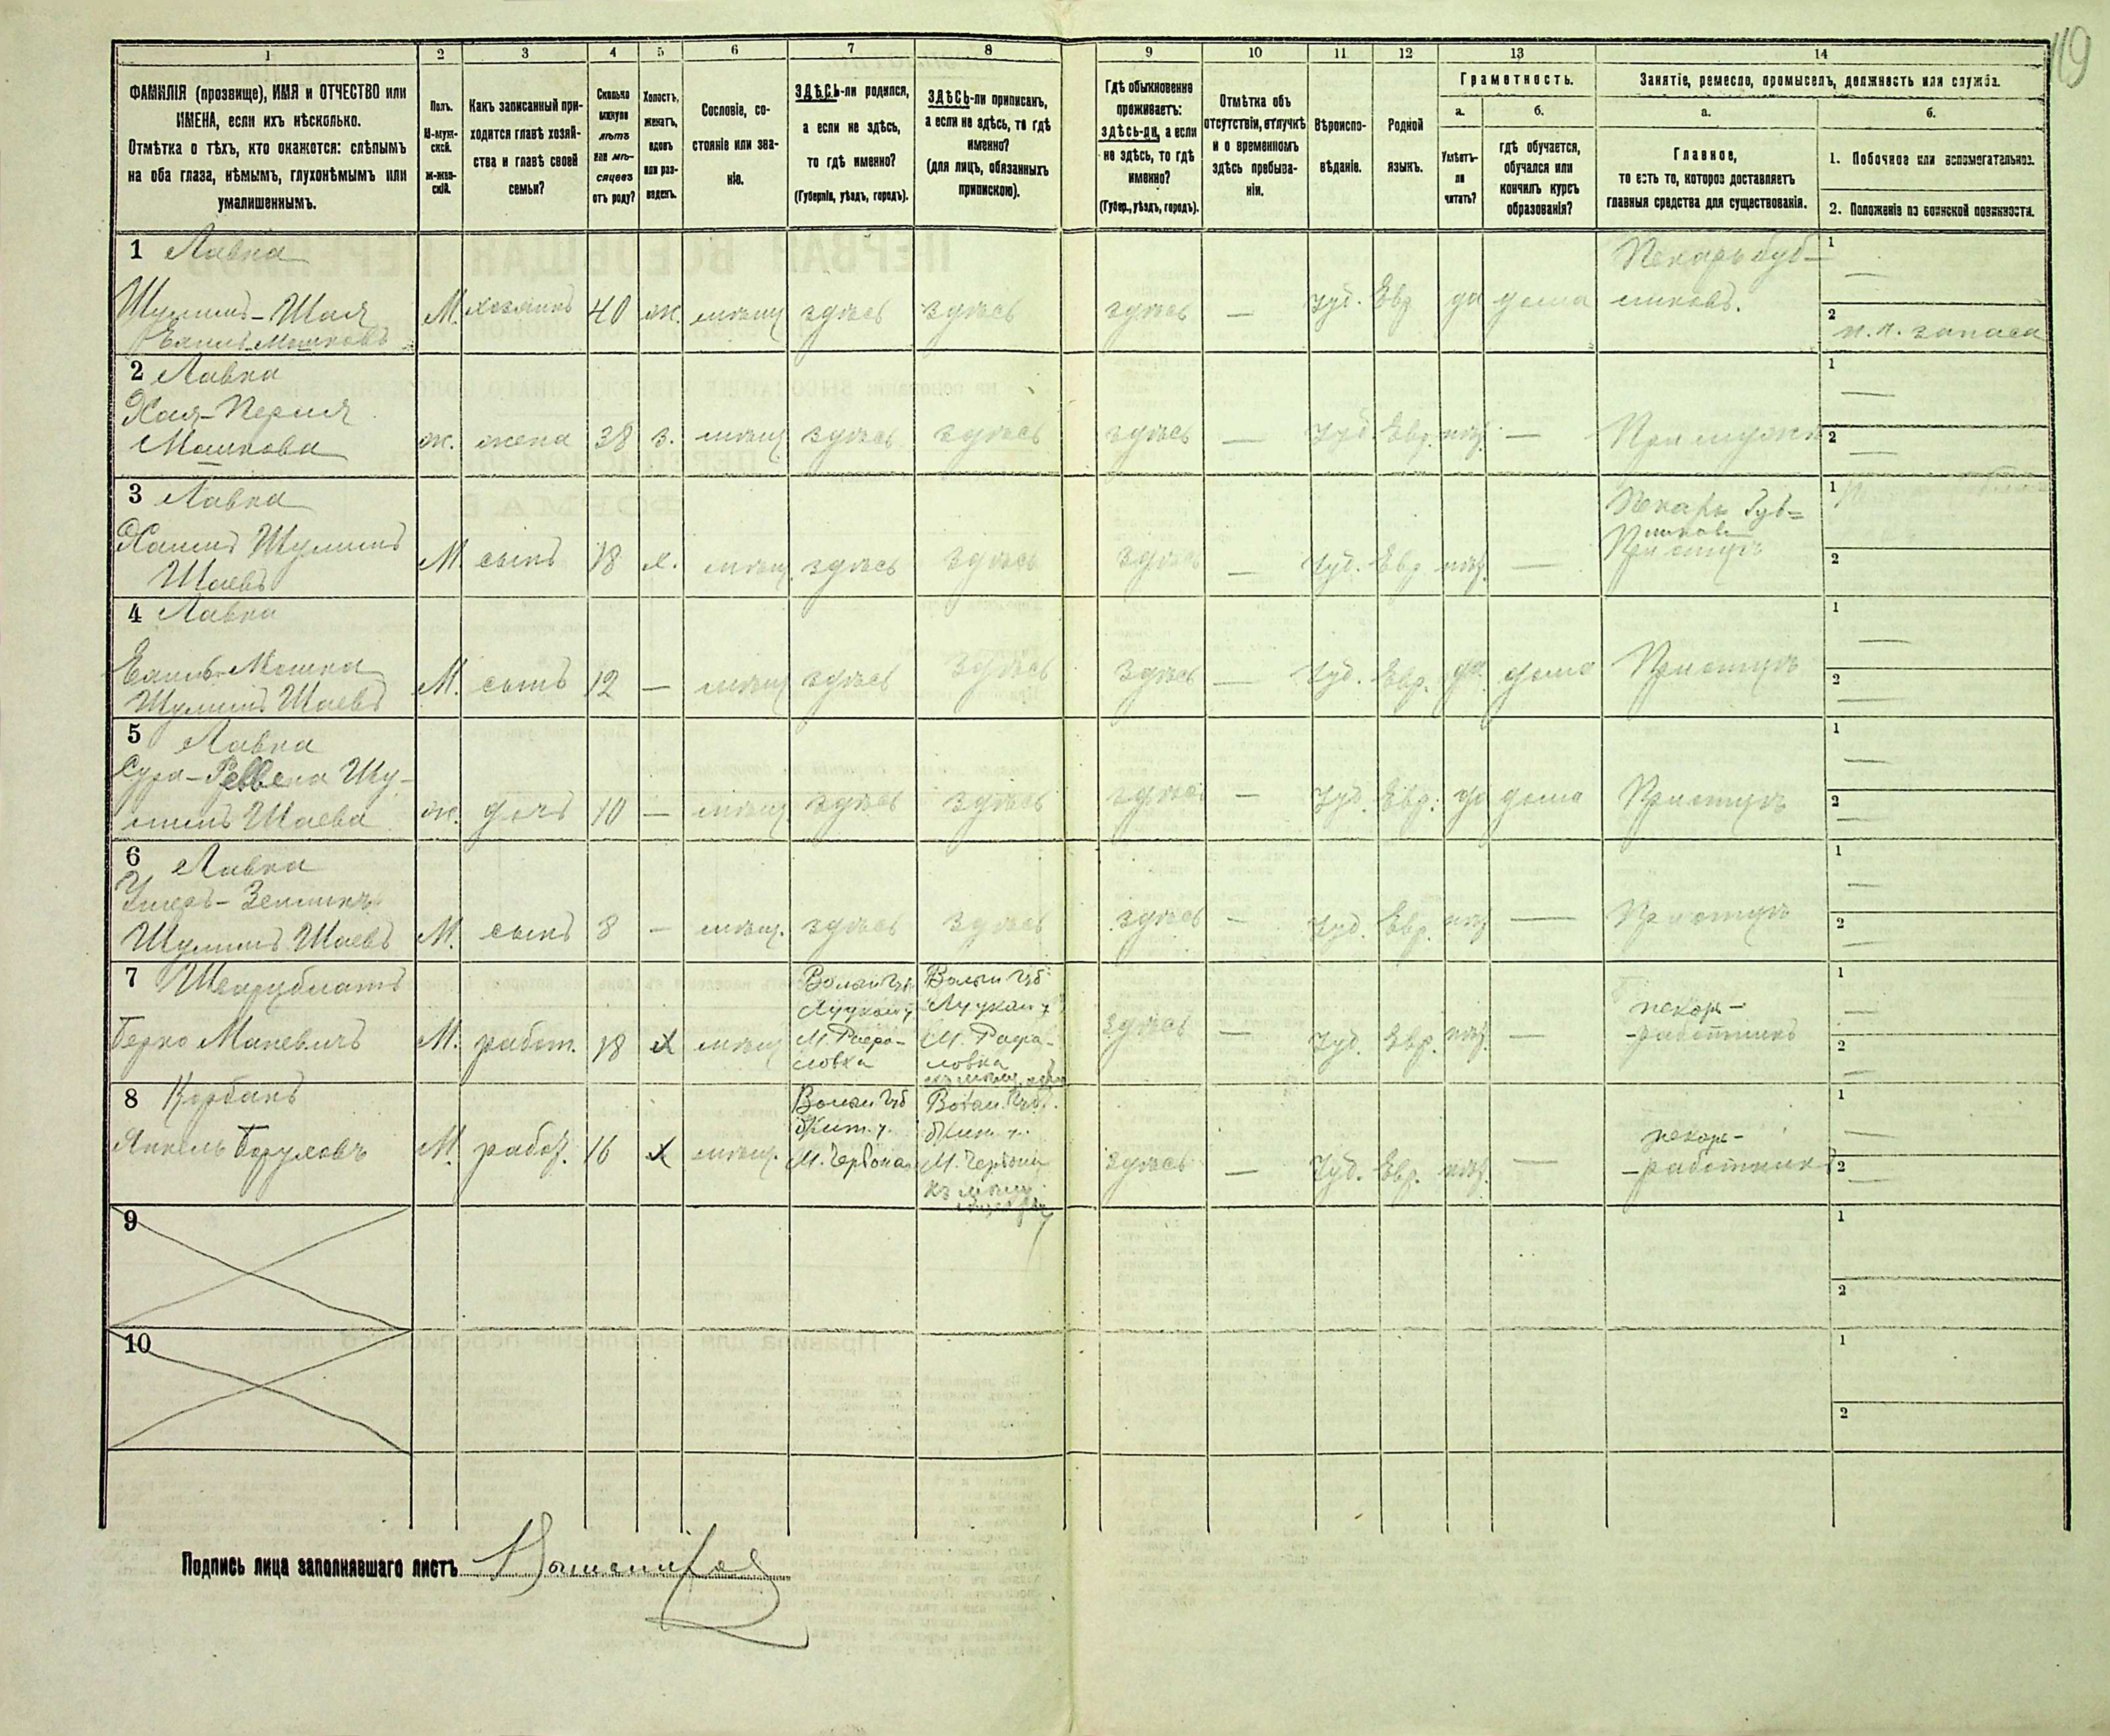 119
1 2 3 4 5 6 7 8 9 10 11 12 13 14
ФАМИЛІЯ (прозвище), ИМЯ и ОТЧЕСТВО или
ИМЕНА, если ихъ нѣсколько.
Отмѣтка о тѣхъ, кто окажется: слѣпымъ
на оба глаза, нѣмымъ, глухонѣмымъ или
умалишеннымъ.
Полъ.
М-муж-
ской.
Ж-жен-
скій.
Какъ записанный при-
ходится главѣ хозяй-
ства и главѣ своей
семьи?
Сколько
минуло
лѣтъ
или мѣ-
сяцевъ
отъ роду?
Холостъ,
женатъ,
вдовъ
или раз-
веденъ.
Сословіе, со-
стояніе или зва-
ніе.
ЗДѢСЬ-ли родился,
а если не здѣсь,
то гдѣ именно?
(Губернія, уѣздъ, городъ).
ЗДѢСЬ-ли приписанъ,
а если не здѣсь, то гдѣ
именно?
(для лицъ, обязанныхъ
припискою).
Гдѣ обыкновенно
проживаетъ:
здѣсь-ли, а если
не здѣсь, то гдѣ
именно?
(Губер., уѣздъ, городъ).
Отмѣтка объ
отсутствіи, отлучкѣ
и о временномъ
здѣсь пребыва-
ніи.
Вѣроиспо-
вѣданіе.
Родной
языкъ.
Грамотность.
а.
Умѣетъ-
ли
читать?
б.
гдѣ обучается,
обучался или
кончилъ курсъ
образованія?
Занятіе, ремесло, промыселъ, должность или служба.
а.
Главное,
то есть то, которое доставляетъ
главныя средства для существованія.
б.
1. Побочное или вспомогательное.
2. Положеніе по воинской повинности.
1 Лавка Пекарь буб- 1 —
Шулимъ-Шая М. хозяинъ 40 ж. мѣщ здѣсь здѣсь здѣсь — Іуд. Евр да дома ликовъ. 2
Мошковъ запаса
2 Лавка 1 —
Хая-Перля
Мошкова ж. жена 38 з. мѣщ здѣсь здѣсь здѣсь — Іуд Евр. нѣт. — При мужѣ 2 —
3 Лавка Пекарь буб= 1
Хаимъ Шулимъ
Шаевъ М сынъ 18 х. мѣщ. здѣсь здѣсь здѣсь — Іуд. Евр нѣт. — При отцѣ 2
4 Лавка 1 —
Мошка М. сынъ 12 — мѣщ здѣсь здѣсь здѣсь — Іуд. Евр. да дома При отцѣ 2 —
Шулимъ Шаевъ
5 Лавка 1 —
Сура- Шу-
лимъ Шаева ж. дочь 10 — мѣщ здѣсь здѣсь здѣсь — Іуд. Евр. да дома При отцѣ 2 —
6 Лавка 1 —
Шулимъ Шаевъ М. сынъ 8 — мѣщ. здѣсь здѣсь здѣсь — Іуд. Евр. нѣт — При отцѣ 2 —
7 Волын Губ. Волын Губ. 1 —
Луцкаго у. Луцкаго у. пекарь-
Берко Маневичъ М. работ. 18 х мѣщ М. Рафа- М. Рафа- здѣсь — Іуд. Евр. нѣт. — -работникъ 2 —
ловка ловка
8 Корбанъ Волын Губ Волын. Губ. 1 —
Жит. у. Жит. у. пекарь-
Янкель М. работ. 16 х мѣщ. М. Червона М. Червона здѣсь — Іуд. Евр. нѣт. — -работникъ 2 —
къ мѣщ.
9 1
2
10 1
2
Подпись лица заполнявшаго листъ